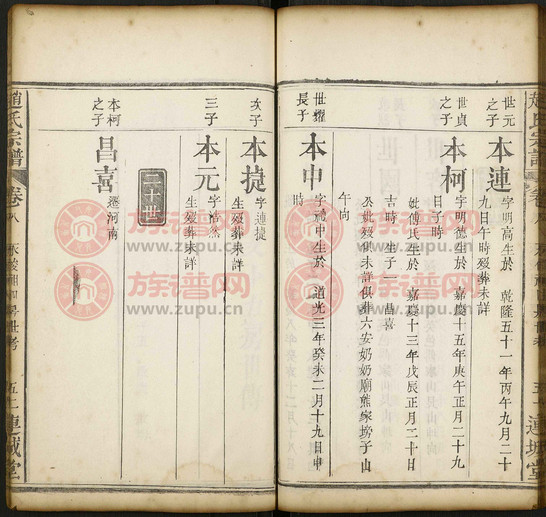 世元
之子
本連
字明高生於 乾隆五十一年丙午九月二十
九日午時殁葬未詳
世貞
之子
本柯
字明德生於 嘉慶十五年庚午正月二十九
日子時
妣傅氏生於 嘉慶十三年戊辰正月二十日
吉時 生子一 昌喜
公妣殁俱未詳俱葬六安奶奶廟熊家塝子山
午向
世耀
長子
本中
字禮中生於 道光三年癸未二月十九日申
時
次子
本捷
字連捷
生殁葬未詳
三子
本元
字浩然
生殁葬未詳
二十世
本柯
之子
昌喜
遷河南
趙氏宗譜
卷八
五十
連城堂
趙氏宗譜
卷八
連城堂
族谱网
www.zupu.cn
族谱网
www.zupu.cn
族谱网
www.zupu.cn
族谱网
www.zupu.cn